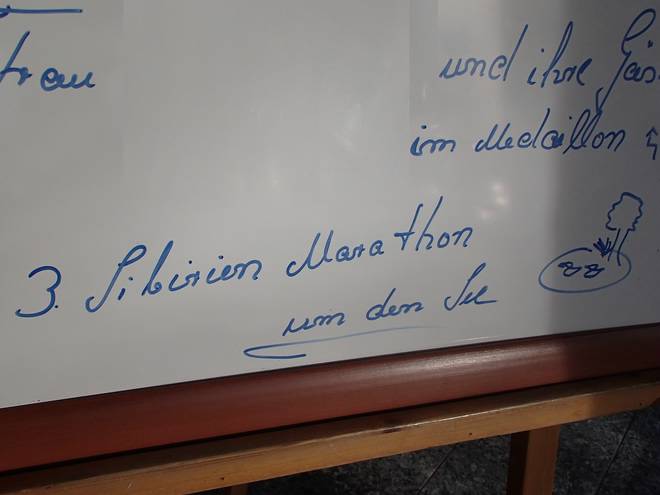 und ihre
im Medaillon
3. Sibirien Marathon
um den See